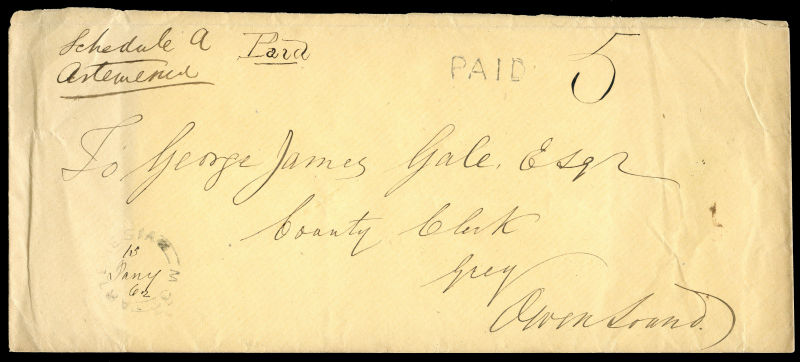 Schedule A
Artemesia
Paid
PAID 5
To George James Gale, Esqr
County Clerk
Grey
Owen Sound.
13
Jany
62